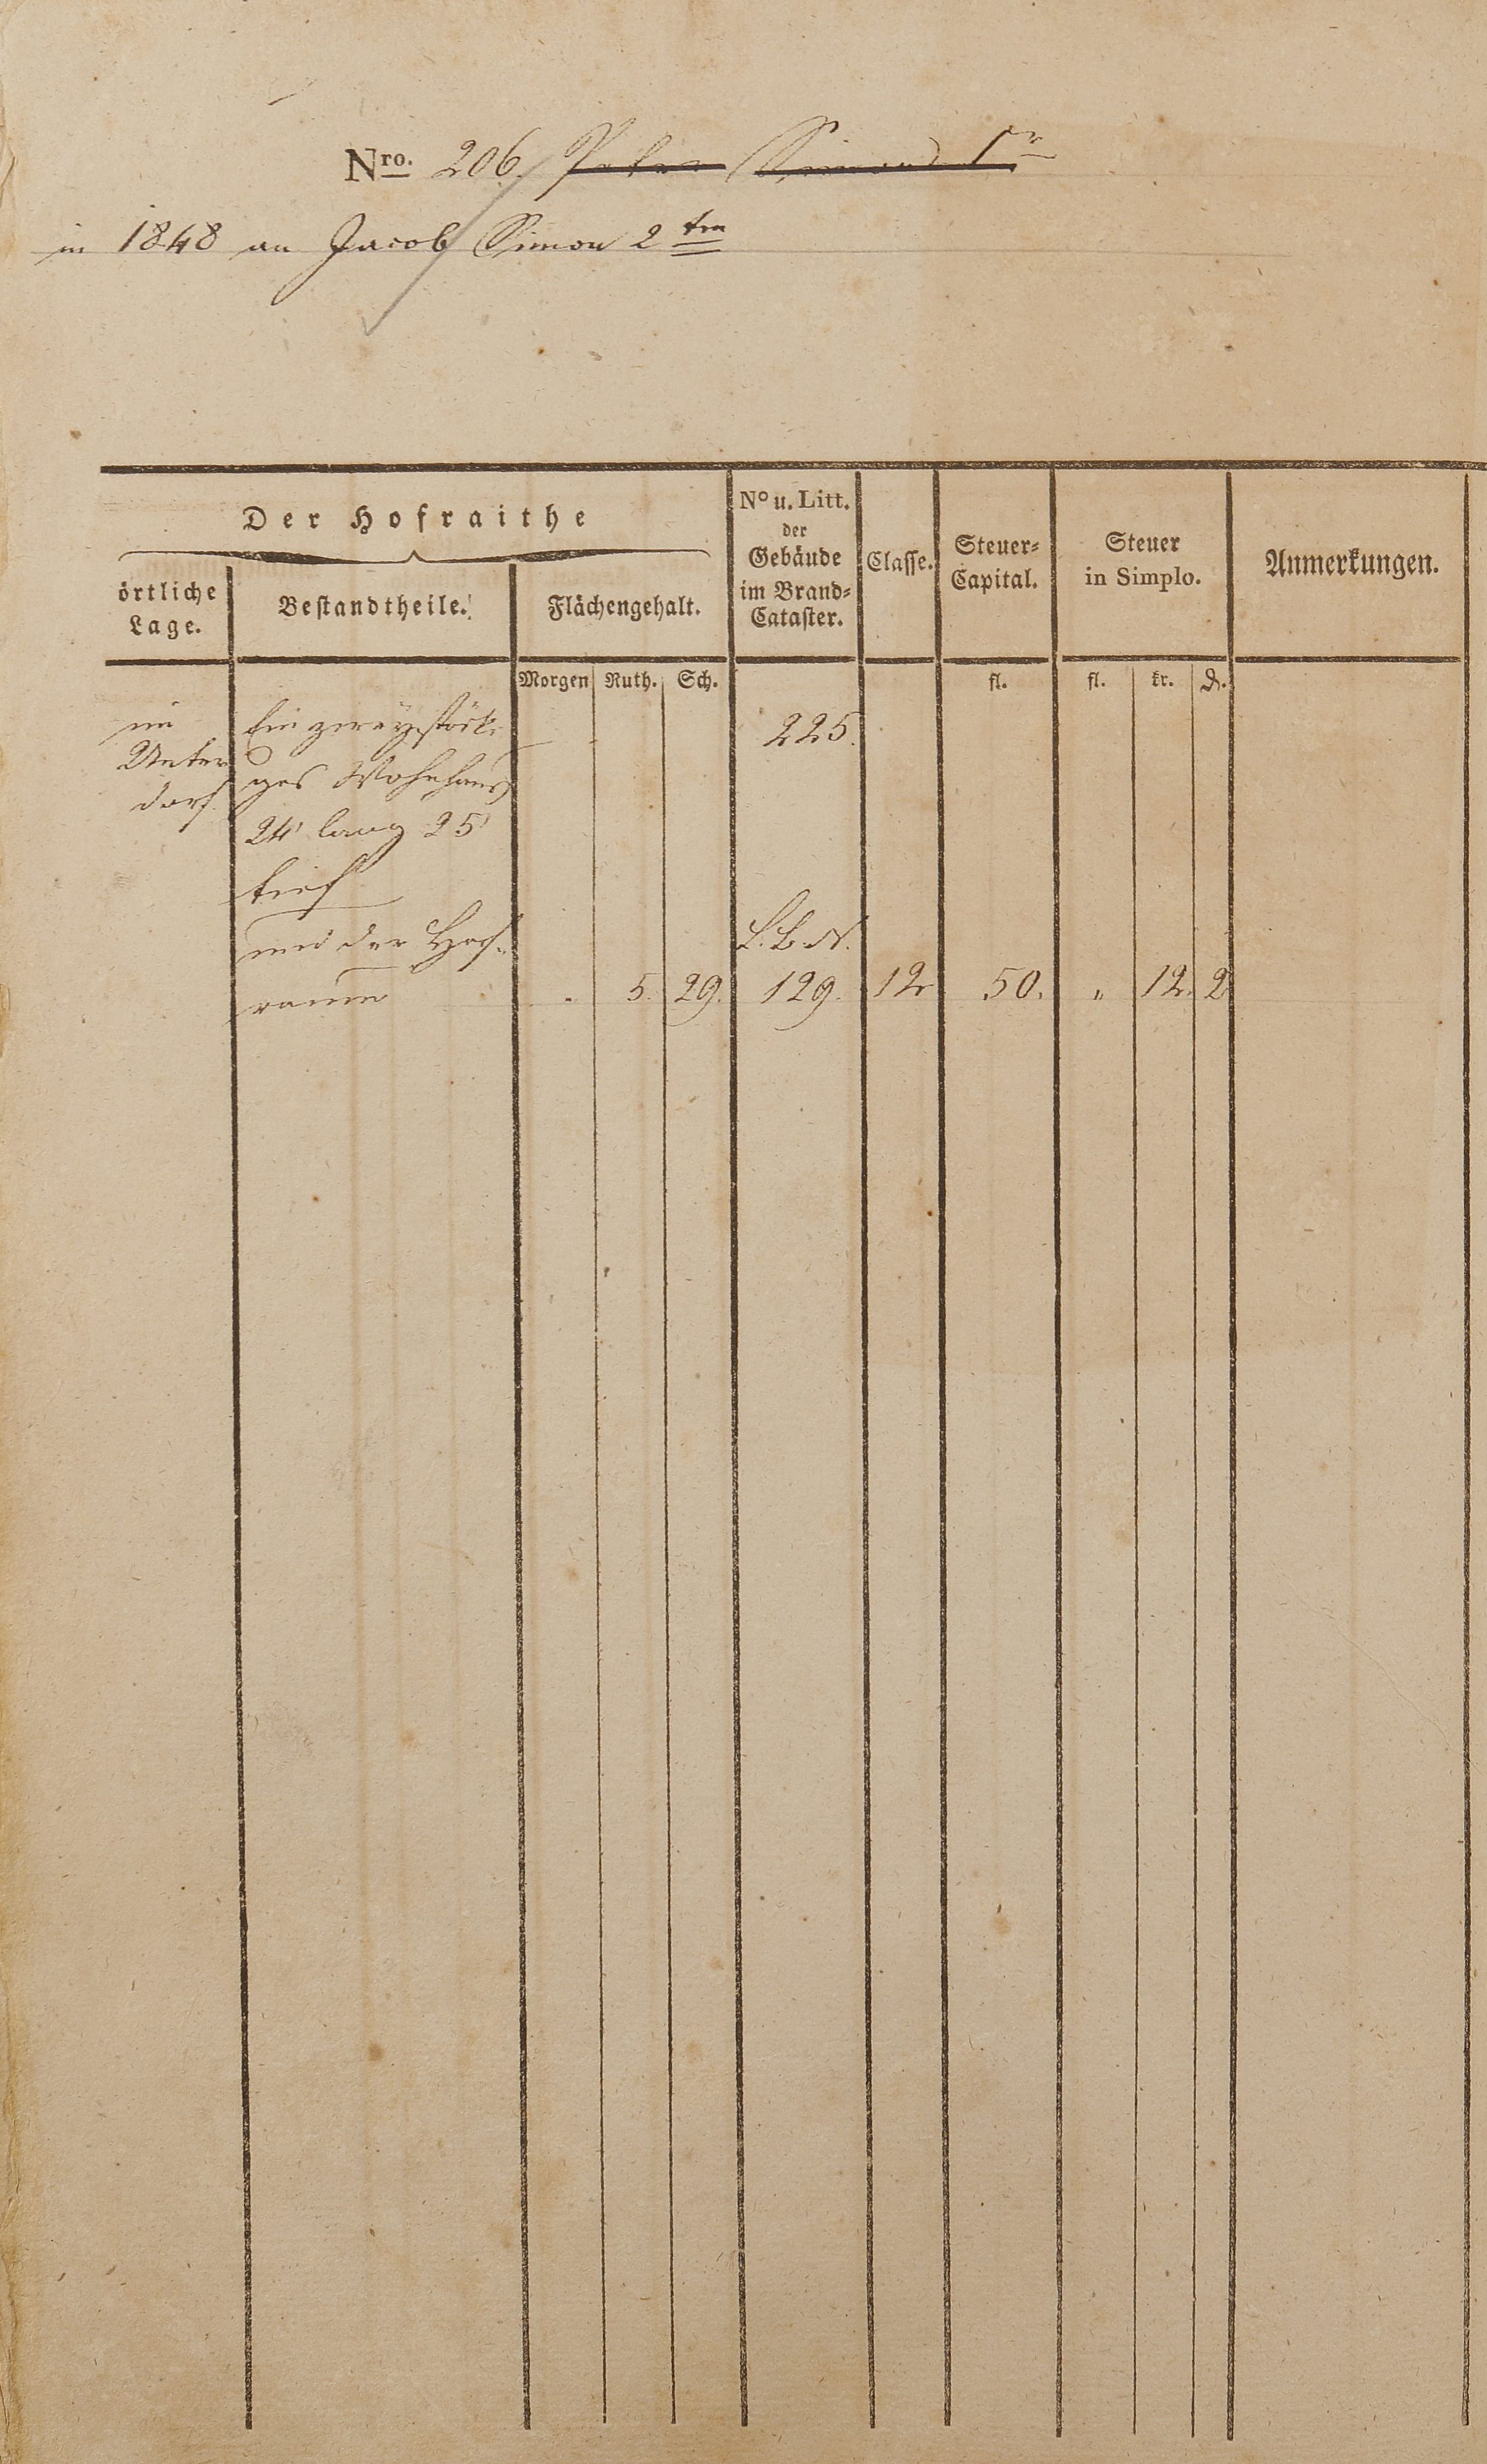 Nro. 206. Peter Simon 1r
in 1848 an Jacob Simon 2ten
Der Hofraithe
örtliche Lage.
Bestandtheile.
Flächengehalt.
No u. Litt. der Gebäude im Brand-Cataster.
Classe.
Steuer-Capital.
Steuer in Simplo.
Anmerkungen.
Morgen Ruth. Sch. fl. fl. kr. d.
im Ein zweystöcki 225.
Unter ges Wohnhaus
dorf. 24' lang 25'
tief
und der Hof- L. B. N.
raum " 5. 29. 129. 12 50. " 12. 2